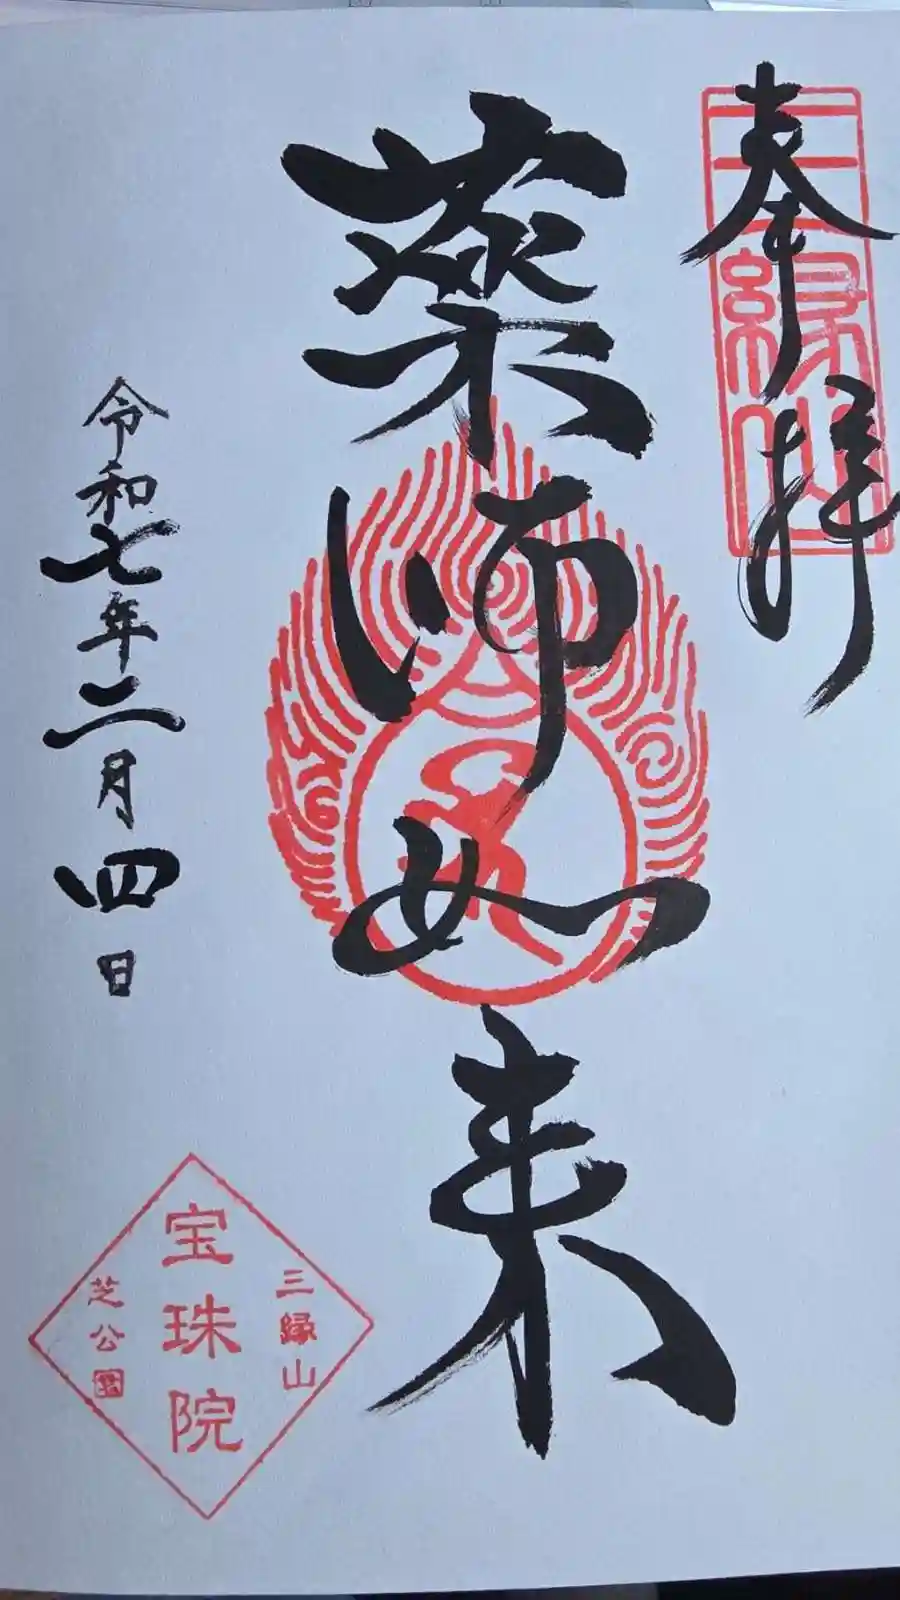 奉拝
三縁山
薬師如来
令和七年二月四日
三縁山
宝珠院
芝公園